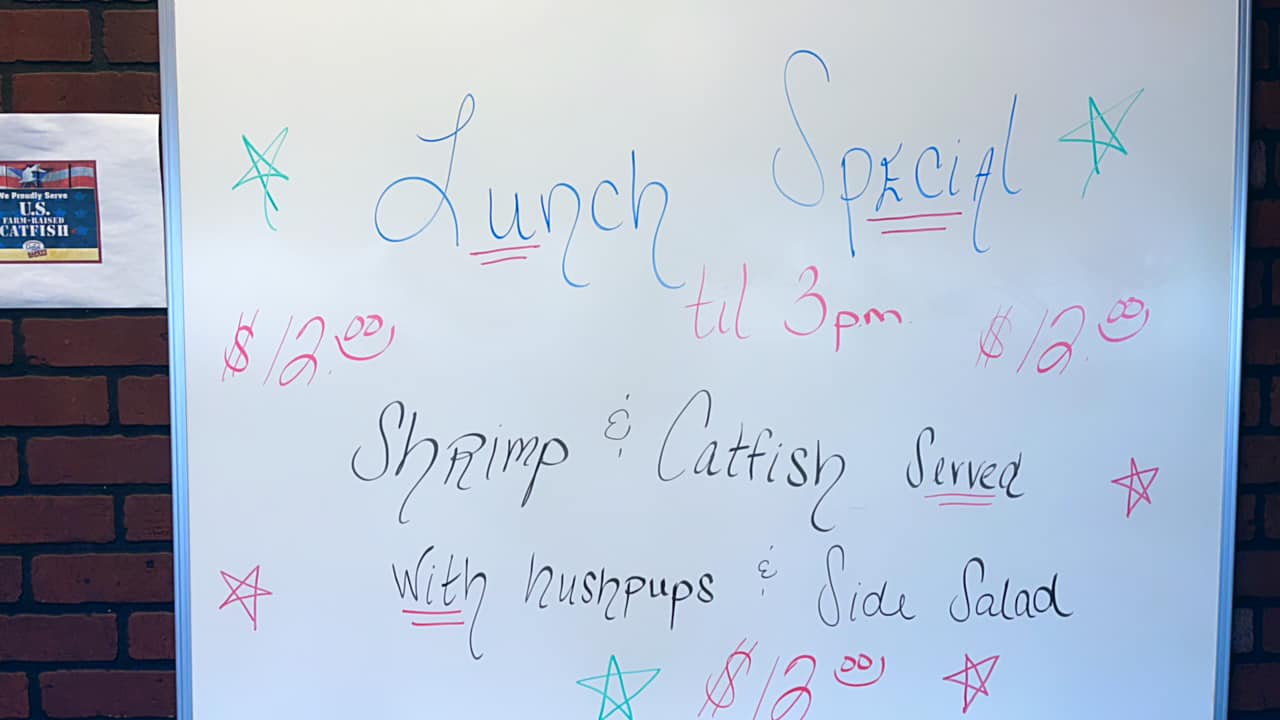 We Proudly Serve
U.S.
FARM-RAISED
CATFISH
Lunch Special
til 3pm.
$12.00 $12.00
Shrimp & Catfish Served
With hushpups & Side Salad
$12.00